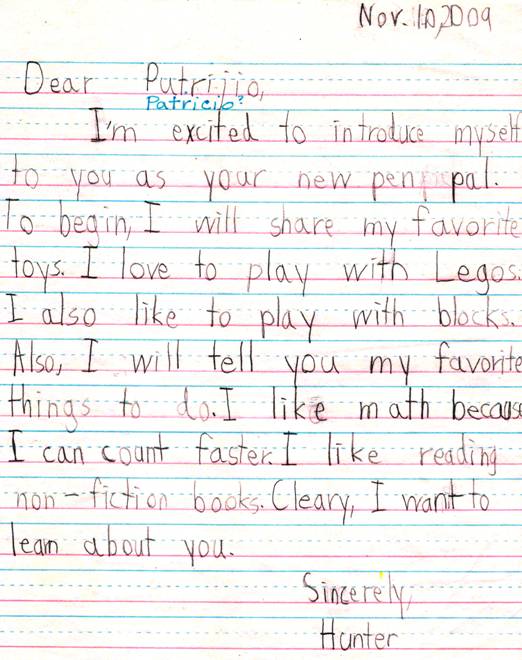 Nov. 10, 2009
Dear Putrijio,
Patricio?
I'm excited to introduce myself
to you as your new pen pal.
To begin, I will share my favorite
toys. I love to play with Legos.
I also like to play with blocks.
Also, I will tell you my favorite
things to do. I like math because
I can count faster. I like reading
non-fiction books. Cleary, I want to
learn about you.
Sincerely,
Hunter